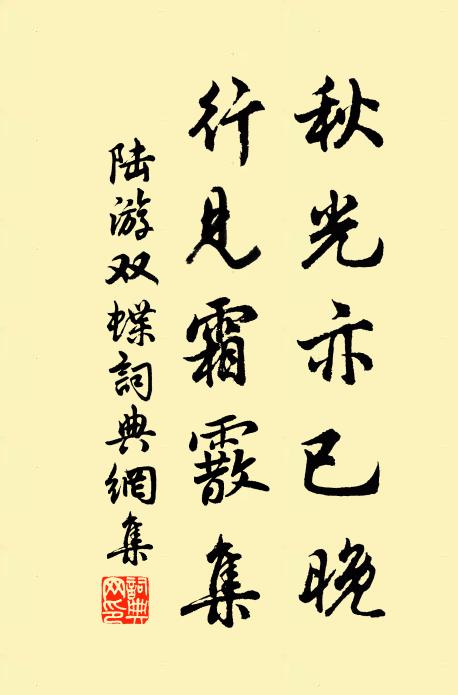 秋光亦已晚
行見霜霰集
陆游双蝶詞典網集
詞典網印